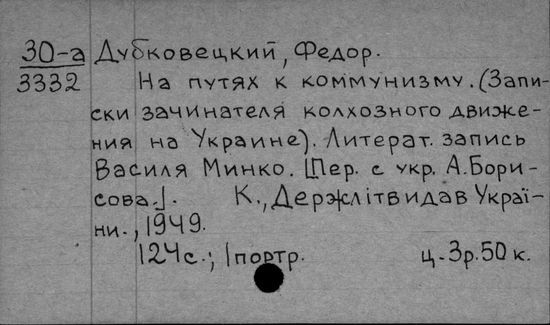 30-а Дубковецкий, Федор.
3332 На путях к коммунизму. (Запи-
ски зачинателя колхозного движе-
ния на Украине). Литерат. запись
Василя Минко. [Пер. с укр. А. Бори-
сова.]. К., Держлітвидав Украї-
ни., 1949.
124с.; 1портр. ц. 3р. 50 к.